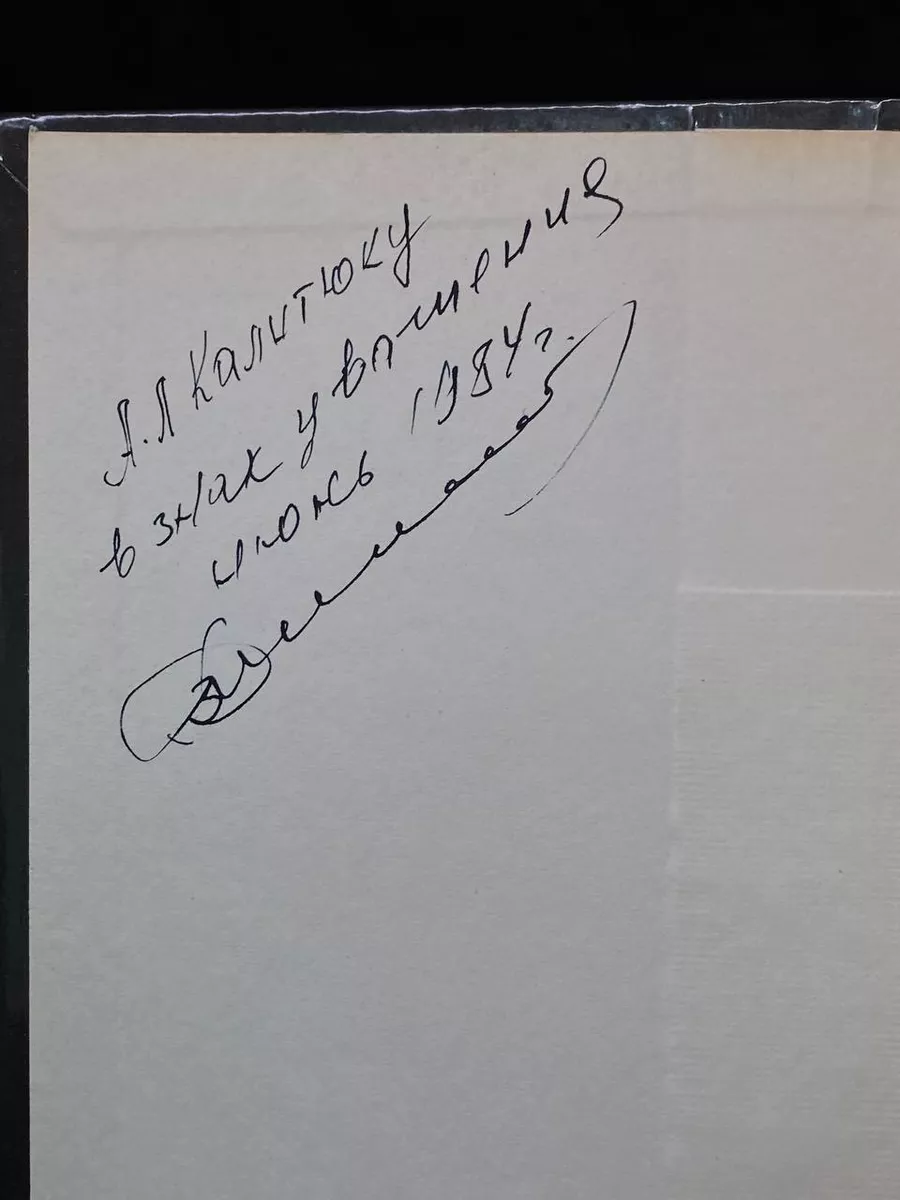 А.Л Калитюку
в знак уважения
июнь 1984г.